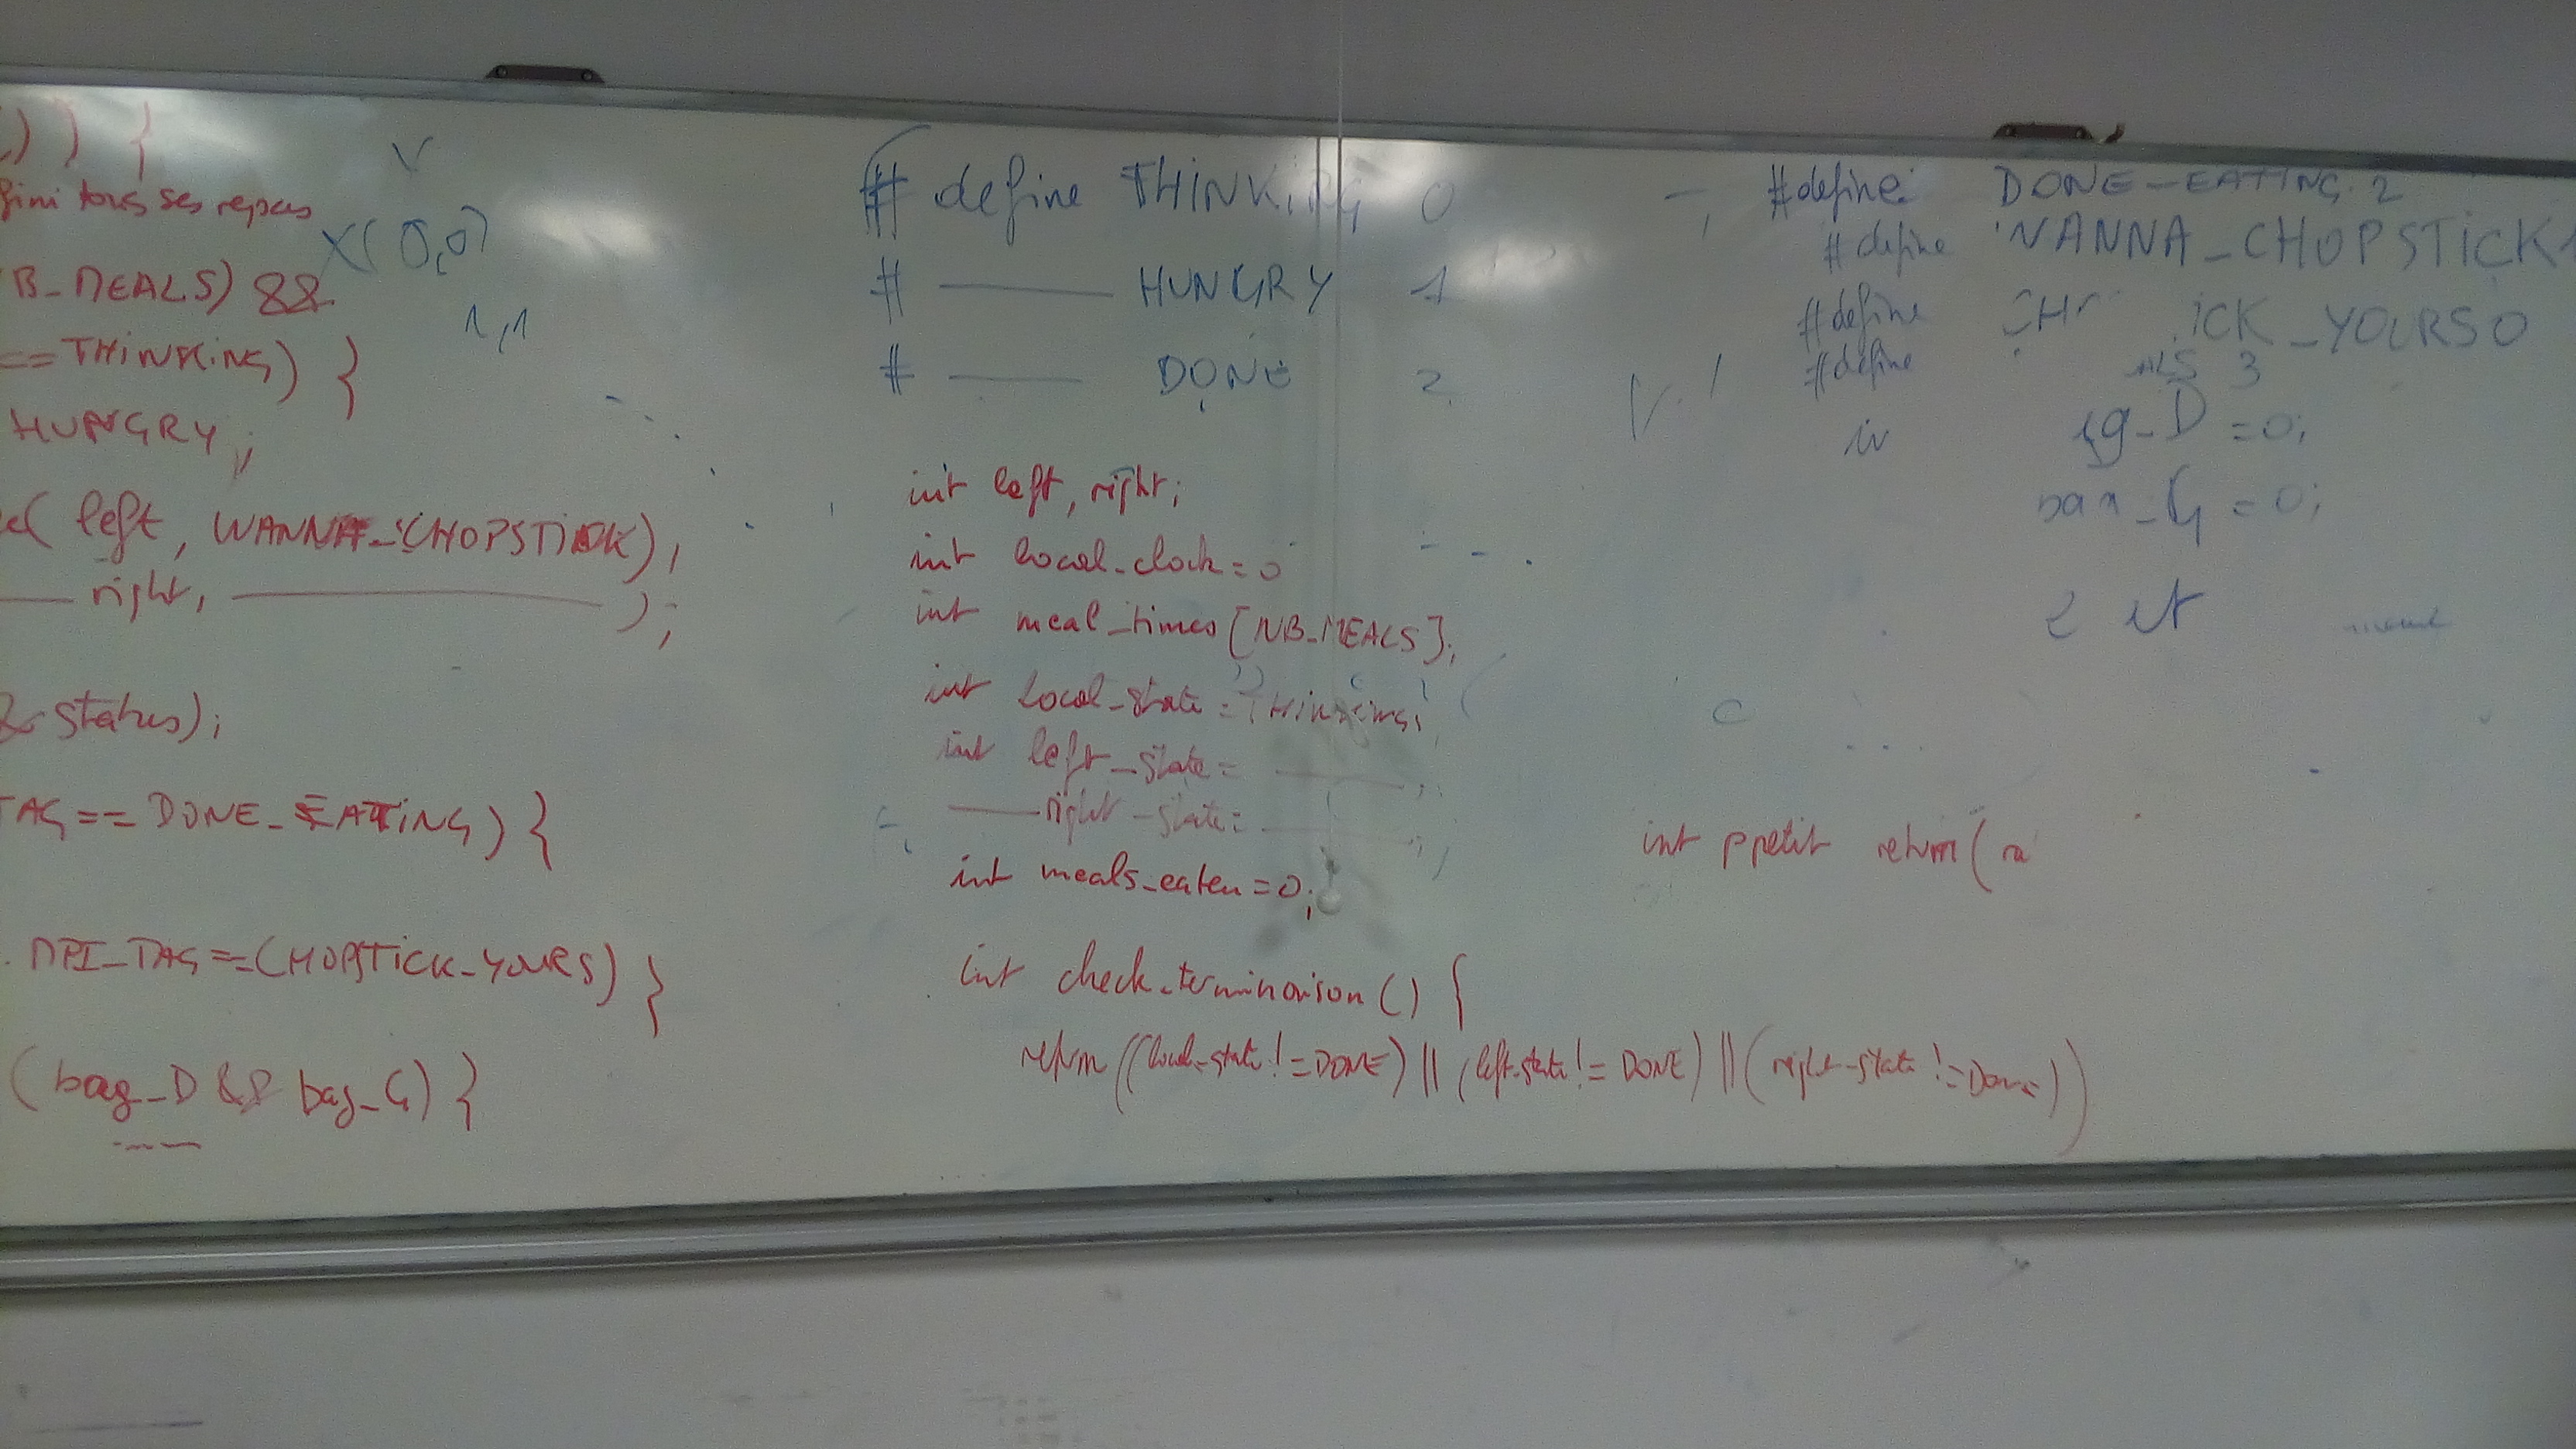 ) ) {
fini tous ses repas
B_MEALS) &&
== THINKING) }
HUNGRY;
( left, WANNA_CHOPSTICK);
—— right, ————);
& status);
TAG == DONE_EATING) {
MPI_TAG == CHOPSTICK_YOURS) }
(bag_D && bag_G) }
V
X(0,0)
1,1
# define THINKING 0
# —— HUNGRY 1
# —— DONE 2
int left, right;
int local_clock = 0
int meal_times [NB_MEALS];
int local_state = THINKING;
int left_state = ——;
—— right_state = ——;
int meals_eaten = 0;
int check_terminaison () {
return ((local_state != DONE) || (left_state != DONE) || (right_state != DONE))
#define DONE_EATING 2
#define WANNA_CHOPSTICK 1
#define ICK_YOURS 0
#define 3
_D = 0;
_G = 0;
int return (